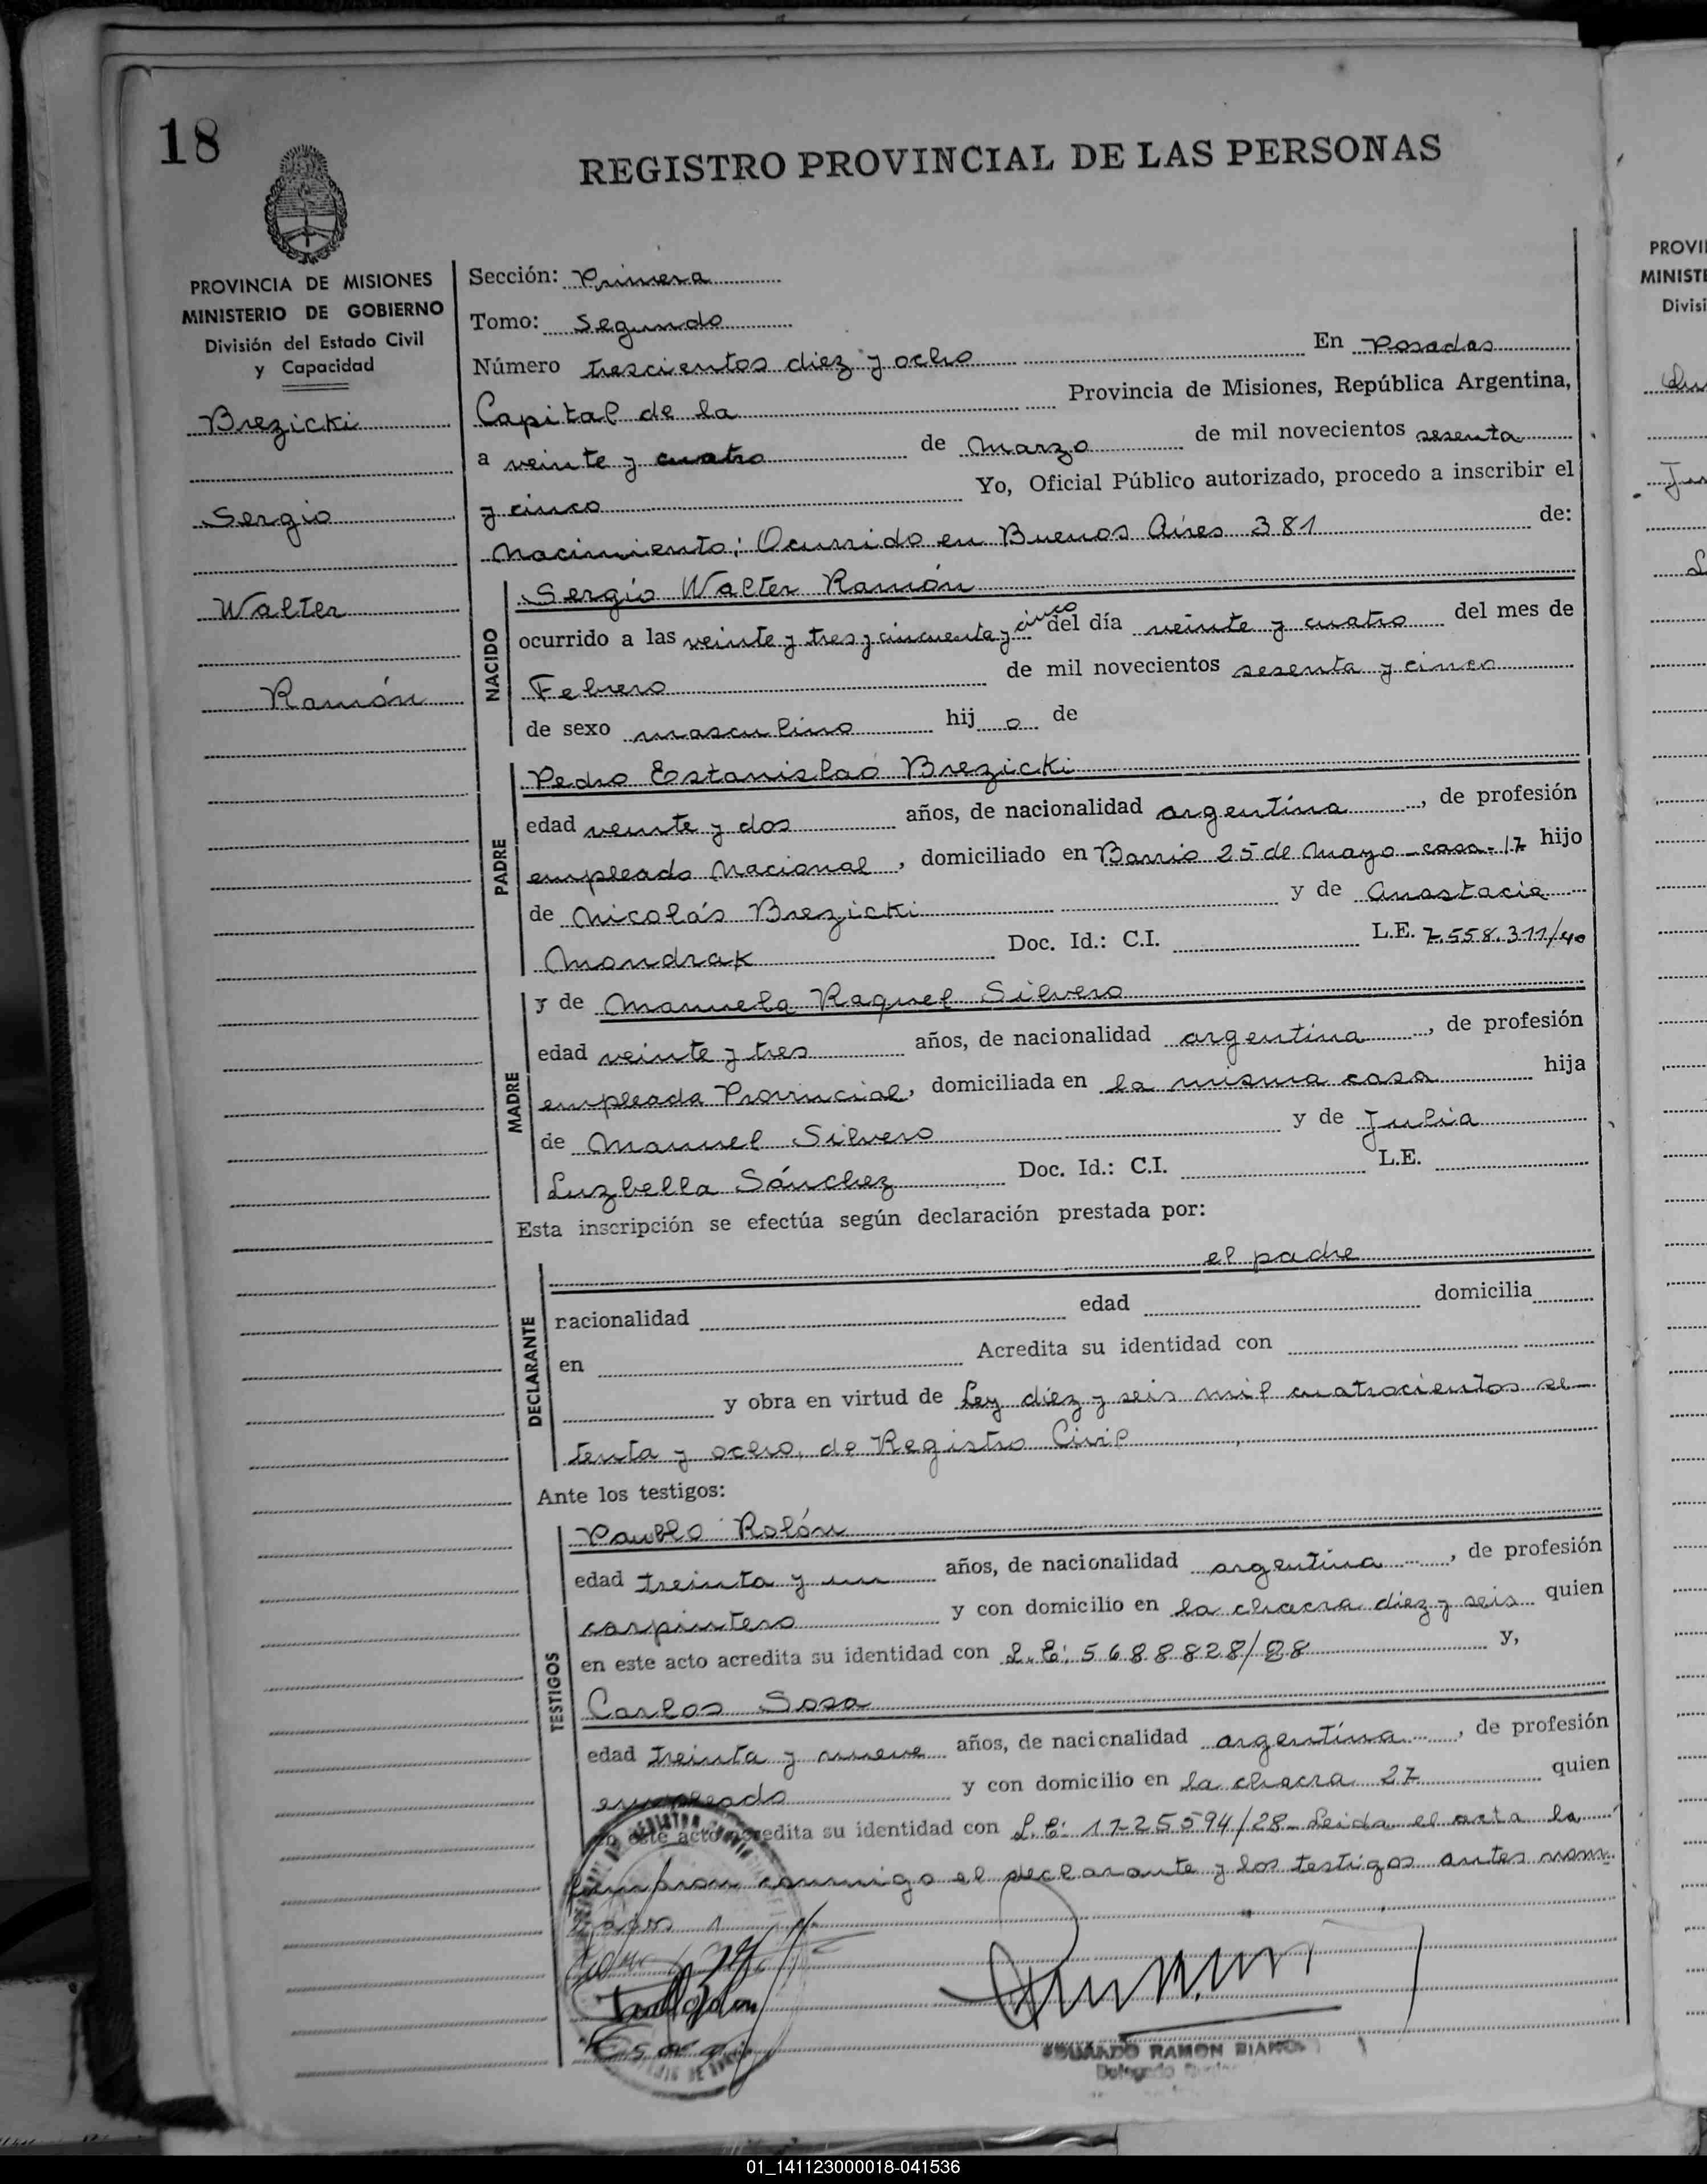 18
REGISTRO PROVINCIAL DE LAS PERSONAS
PROVINCIA DE MISIONES
MINISTERIO DE GOBIERNO
División del Estado Civil
y Capacidad
Brezicki
Sergio
Walter
Ramón
Sección: Primera
Tomo: Segundo
Número trescientos diez y ocho En Posadas
Capital de la Provincia de Misiones, República Argentina,
a veinte y cuatro de Marzo de mil novecientos sesenta
y cinco Yo, Oficial Público autorizado, procedo a inscribir el
Nacimiento; Ocurrido en Buenos Aires 381 de:
NACIDO
Sergio Walter Ramón
ocurrido a las veinte y tres y cincuenta y cinco del día veinte y cuatro del mes de
Febrero de mil novecientos sesenta y cinco
de sexo masculino hij o de
PADRE
Pedro Estanislao Brezicki
edad veinte y dos años, de nacionalidad argentina, de profesión
empleado Nacional, domiciliado en Barrio 25 de Mayo - casa - 17 hijo
de Nicolás Brezicki y de Anastacia
Mondrak Doc. Id.: C.I. L.E. 7.558.311/40
MADRE
y de Manuela Raquel Silvero
edad veinte y tres años, de nacionalidad argentina, de profesión
empleada Provincial, domiciliada en la misma casa hija
de Manuel Silvero y de Julia
Luzbella Sánchez Doc. Id.: C.I. L.E.
Esta inscripción se efectúa según declaración prestada por:
DECLARANTE
el padre
nacionalidad edad domicilia
en Acredita su identidad con
y obra en virtud de Ley diez y seis mil cuatrocientos se-
tenta y ocho, de Registro Civil
Ante los testigos:
TESTIGOS
Paublo Rolón
edad treinta y un años, de nacionalidad argentina, de profesión
carpintero y con domicilio en la chacra diez y seis quien
en este acto acredita su identidad con L.E: 5688828/28 y,
Carlos Sosa
edad treinta y nueve años, de nacionalidad argentina, de profesión
empleado y con domicilio en la chacra 27 quien
en este acto acredita su identidad con L.E: 1725594/28 - Leida el acta la
firmaron conmigo el declarante y los testigos antes nom-
brados
EDUARDO RAMON BIANCO
Delegado
PROVI
MINISTE
Divisi
01_141123000018-041536